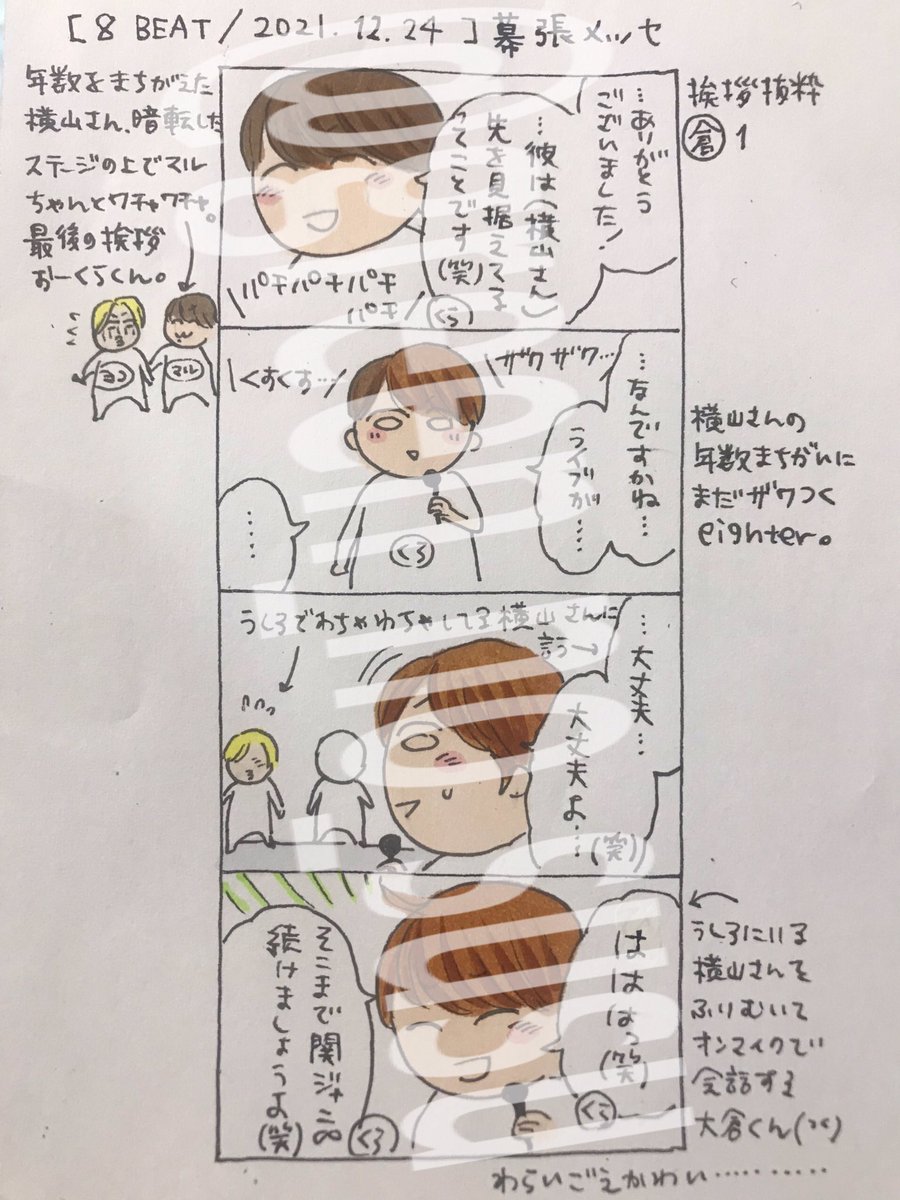 [ 8 BEAT / 2021. 12. 24 ] 幕張メッセ
挨拶抜粋
倉 1
年数をまちがえた
横山さん、暗転した
ステージの上でマル
ちゃんとワチャワチャ。
最後の挨拶
おーくらくん。
ヨコ
マル
…ありがとう
ございました!
…彼は(横山さん)
先を見据えてる
ってことです
(笑)
くら
パチパチパチ
パチ
…なんですかね…
ライブが……
ザワザワ…
くすくす…
くら
……
横山さんの
年数まちがいに
まだザワつく
eighter。
うしろでわちゃわちゃしてる横山さんに
言う→
…大丈夫…
大丈夫よ…
(笑)
ははは(笑)
くら
そこまで関ジャニ∞
続けましょうよ(笑)
くら
うしろにいる
横山さんを
ふりむいて
オンマイクで
会話する
大倉くん
わらいごえかわい…………